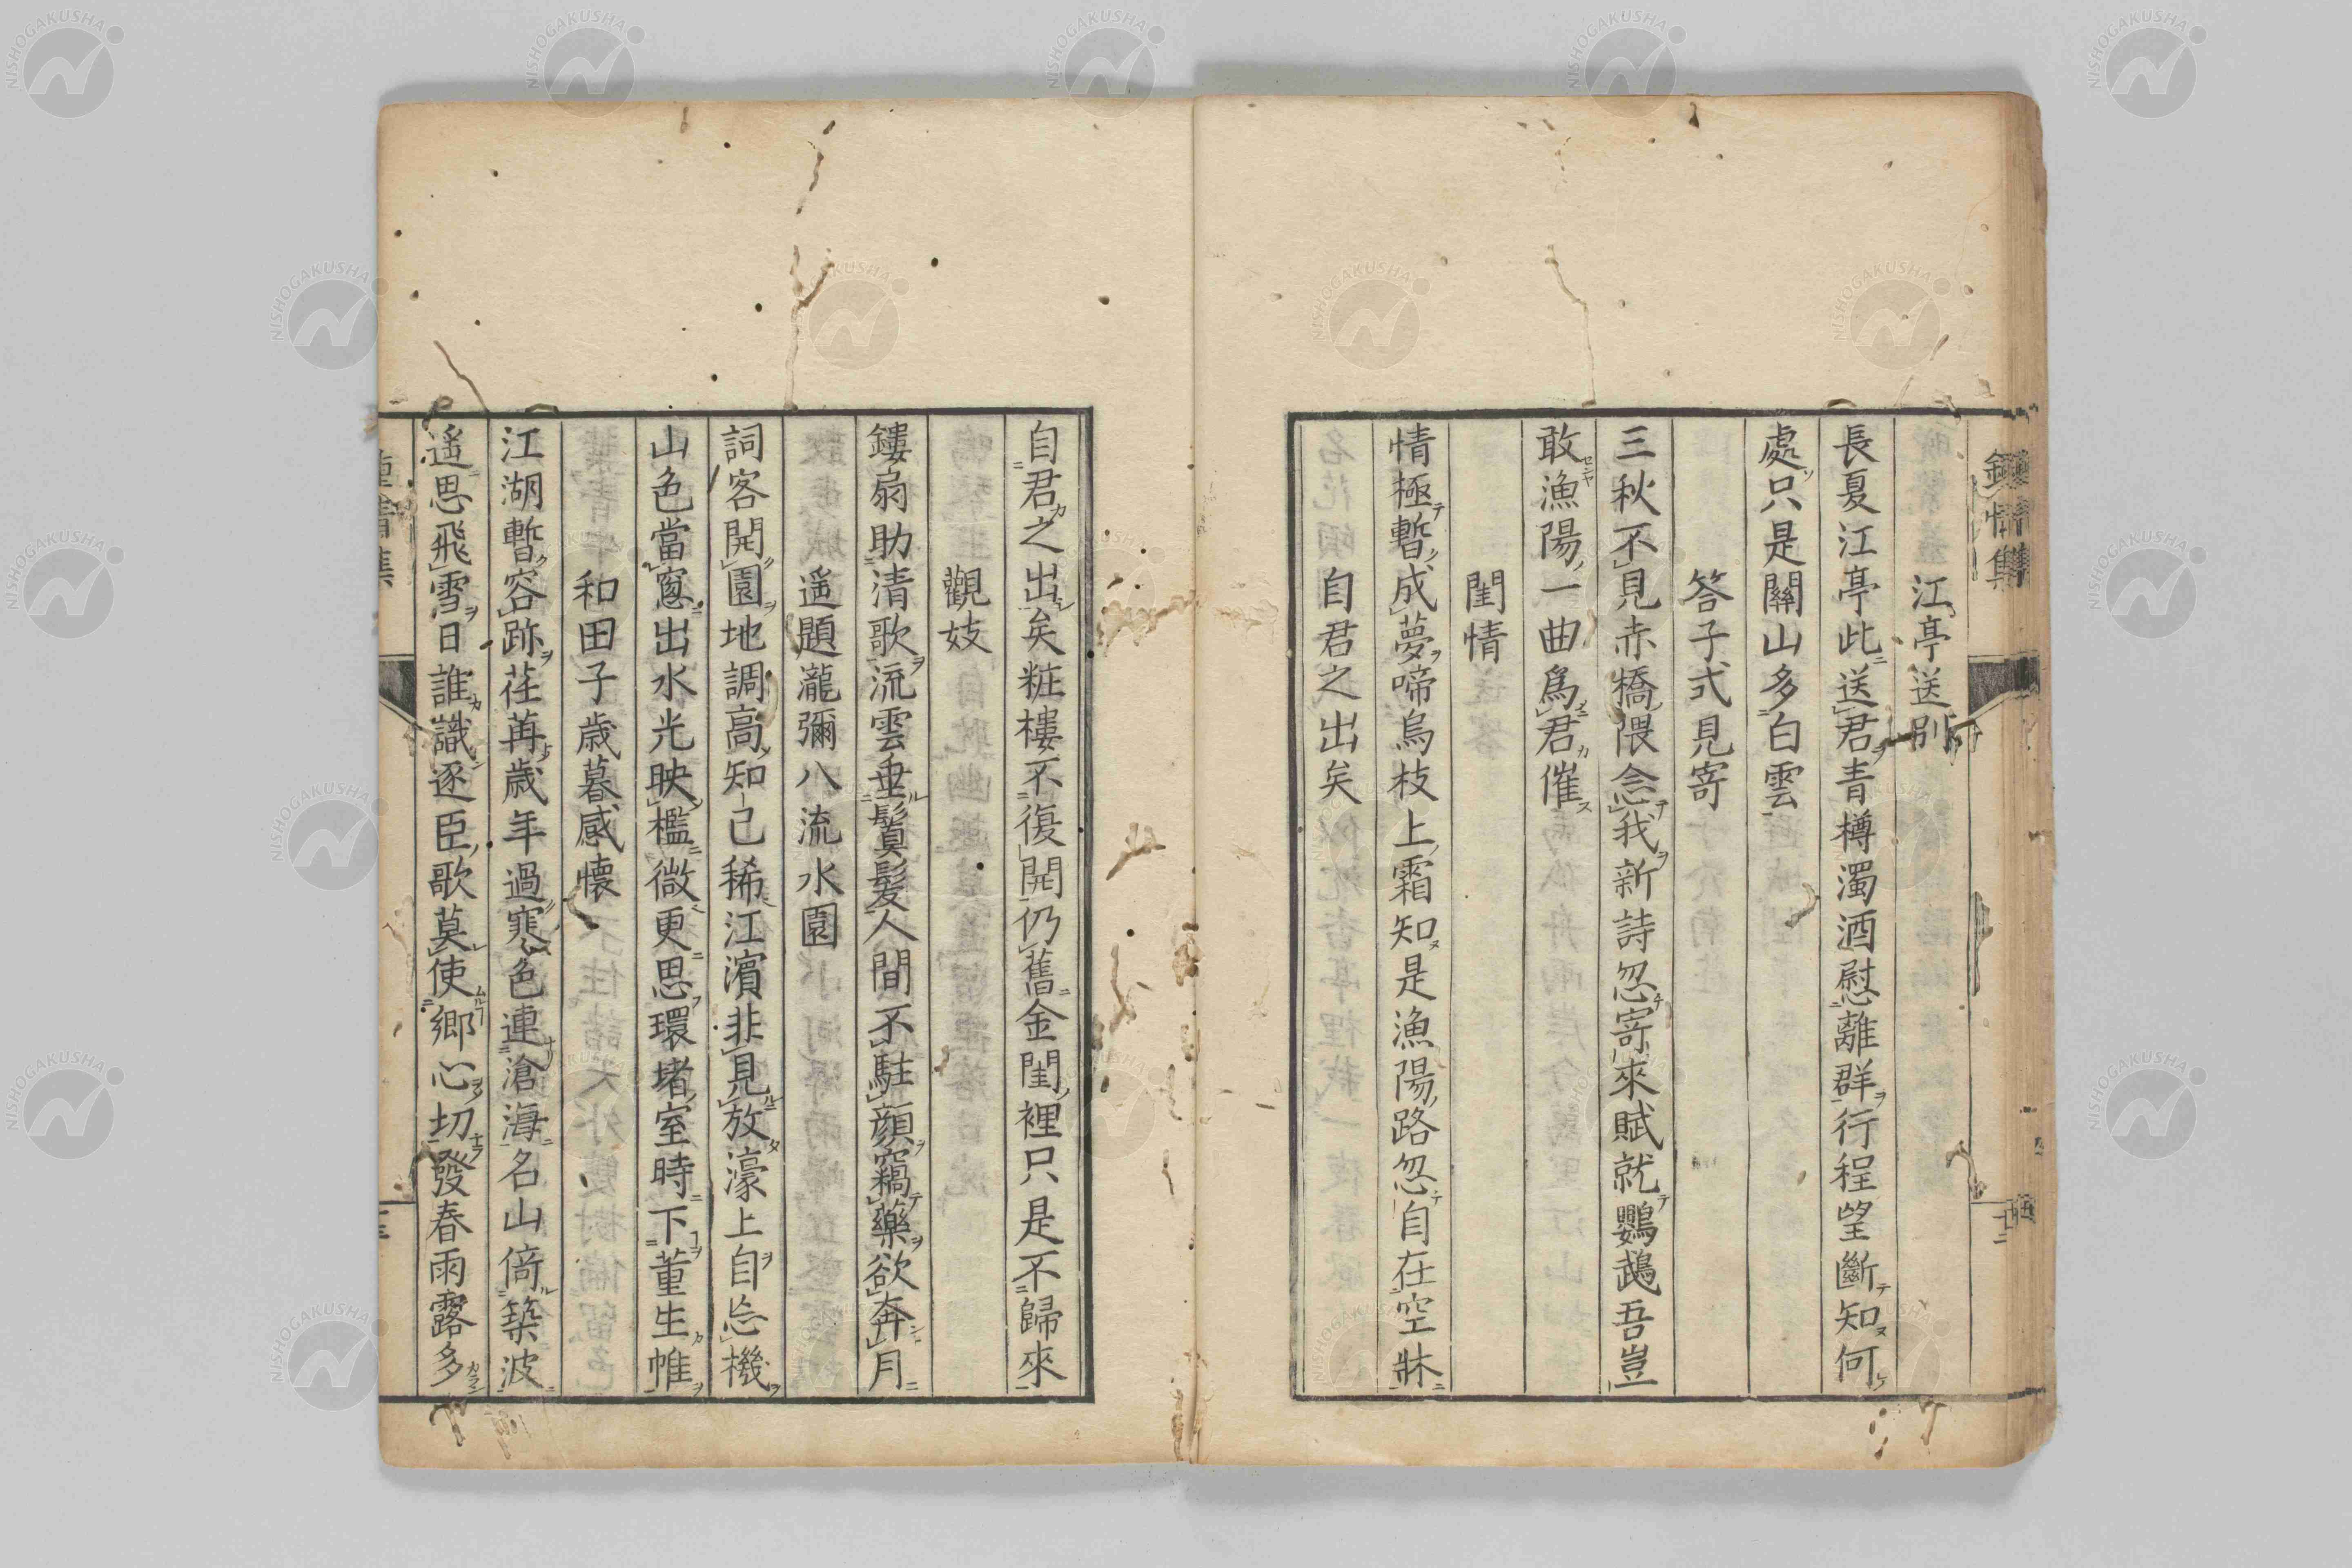 鍾情集
江亭送別
長夏江亭此送君青樽濁酒慰離群行程望斷知何
處只是關山多白雲
答子式見寄
三秋不見赤橋隈念我新詩忽寄來賦就鸚鵡吾豈
敢漁陽一曲爲君催
閨情
情極暫成夢啼烏枝上霜知是漁陽路忽自在空牀
自君之出矣
自君之出矣粧樓不復開仍舊金閨裡只是不歸來
觀妓
鏤扇助清歌流雲垂鬒髮人間不駐顔竊藥欲奔月
遥題瀧彌八流水園
詞客開園地調高知己稀江濵非見放濠上自忘機
山色當窓出水光映檻微更思環堵室時下董生帷
和田子歳暮感懷
江湖暫容跡荏苒歳年過寒色連滄海名山倚築波
遥思飛雪日誰識逐臣歌莫使郷心切發春雨露多
NISHOGAKUSHA